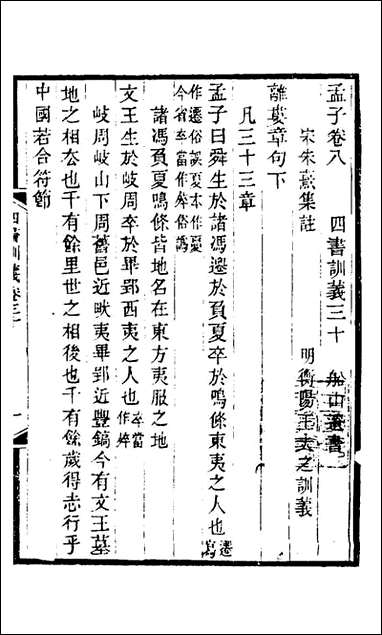 孟子卷八　四書訓義三十　船山遺書
宋朱熹集註　明衡陽王夫之訓義
離婁章句下
凡三十三章
孟子曰舜生於諸馮遷於負夏卒於鳴條東夷之人也
作遷俗誤夏本作
今省卒當作俗譌
諸馮負夏鳴條皆地名在東方夷服之地
文王生於岐周卒於畢郢西夷之人也卒當作
岐周岐山下周舊邑近畎夷畢郢近豐鎬今有文王墓
地之相去也千有餘里世之相後也千有餘歲得志行乎
中國若合符節
四書訓義卷三十